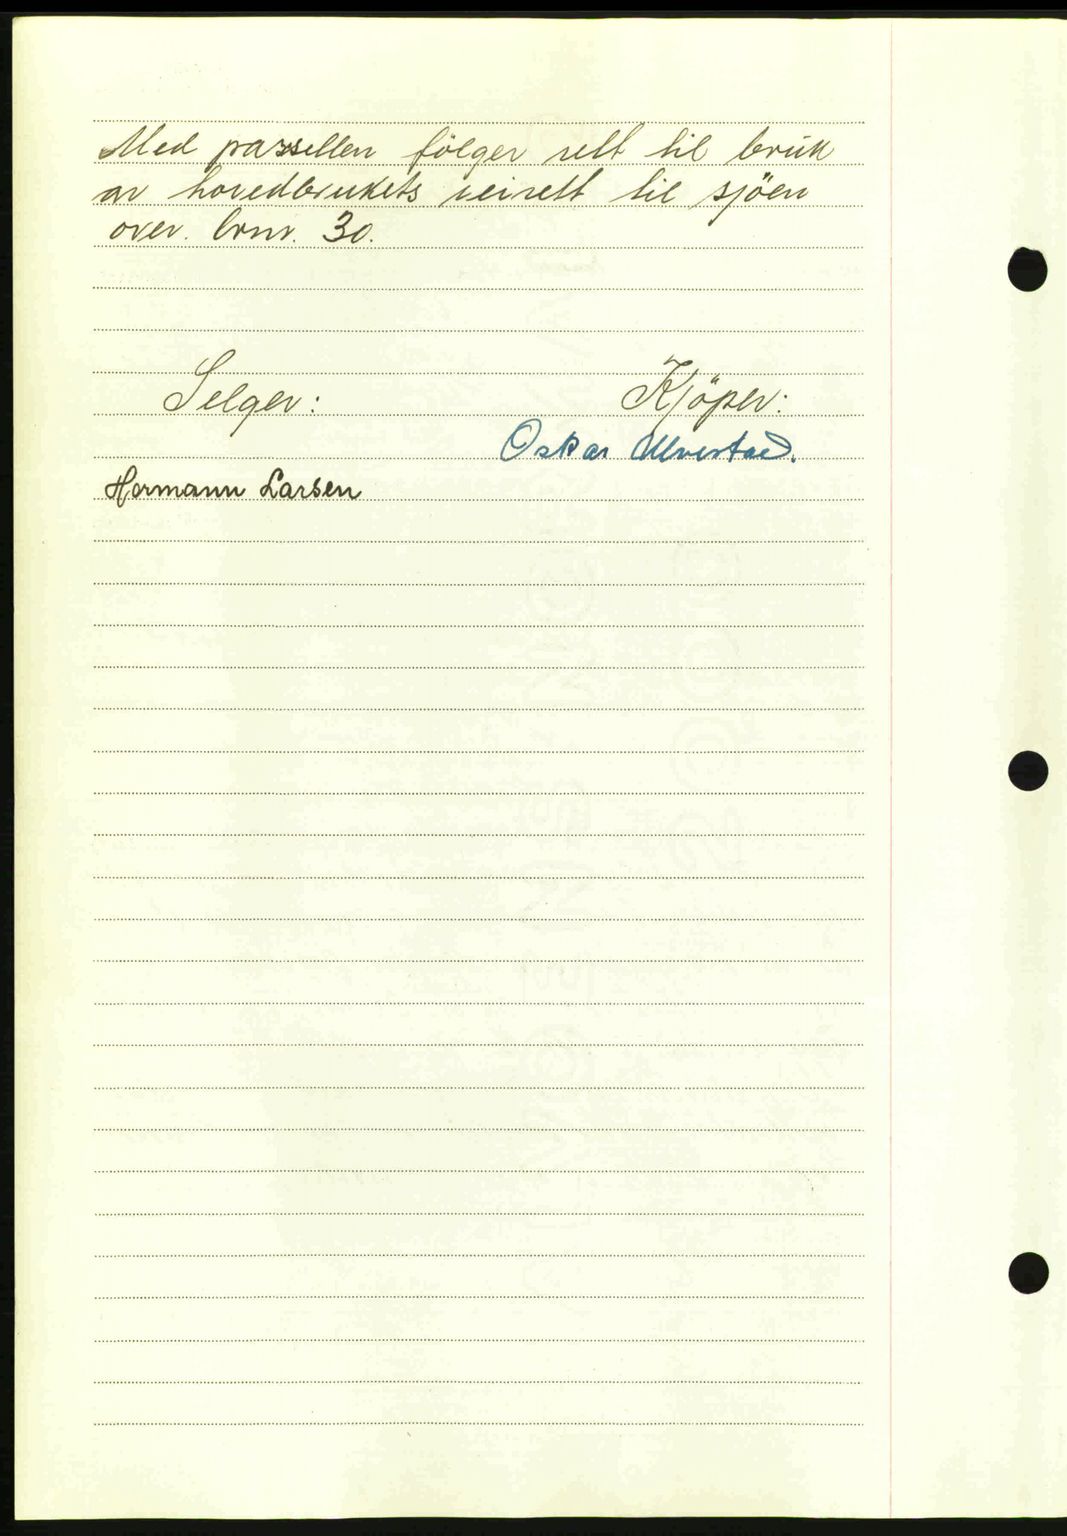 Med parsellen följer rett til bruk
av hovedbrukets veirett til sjöen
over brnr. 30.
Selger:
Kjöper:
Oskar Ulvestad.
Hermann Larsen